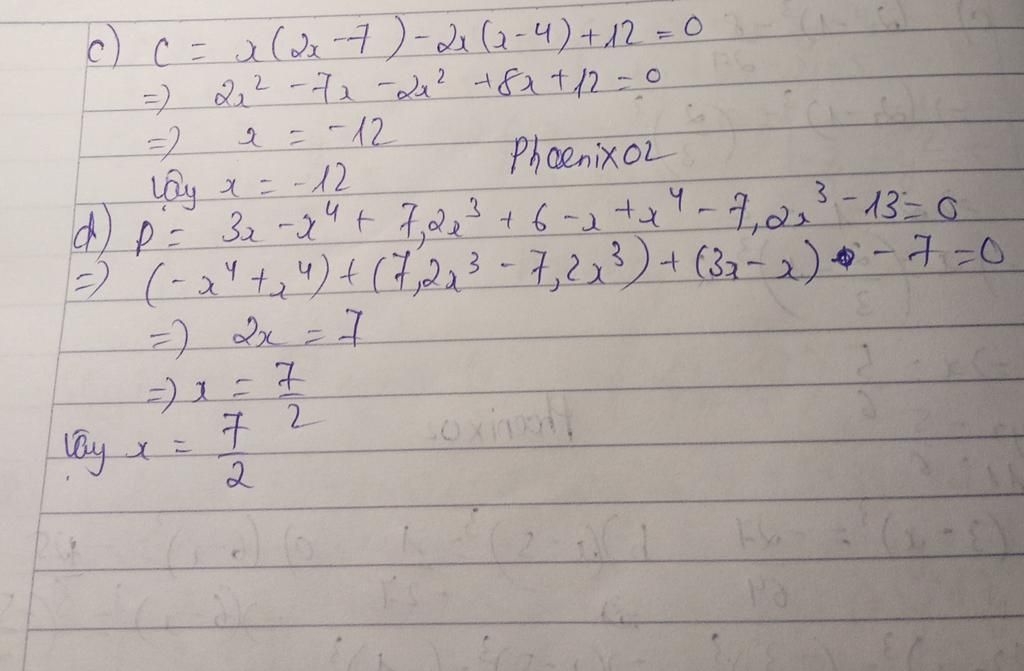 c) C = x(2x - 7) - 2x(x - 4) + 12 = 0
=) 2x² - 7x - 2x² + 8x + 12 = 0
=) x = -12
Phoenix02
Vậy x = -12
d) P = 3x - x⁴ + 7,2x³ + 6 - x + x⁴ - 7,2x³ - 13 = 0
=) (-x⁴ + x⁴) + (7,2x³ - 7,2x³) + (3x - x) - 7 = 0
=) 2x = 7
=) x = 7/2
Vậy x = 7/2